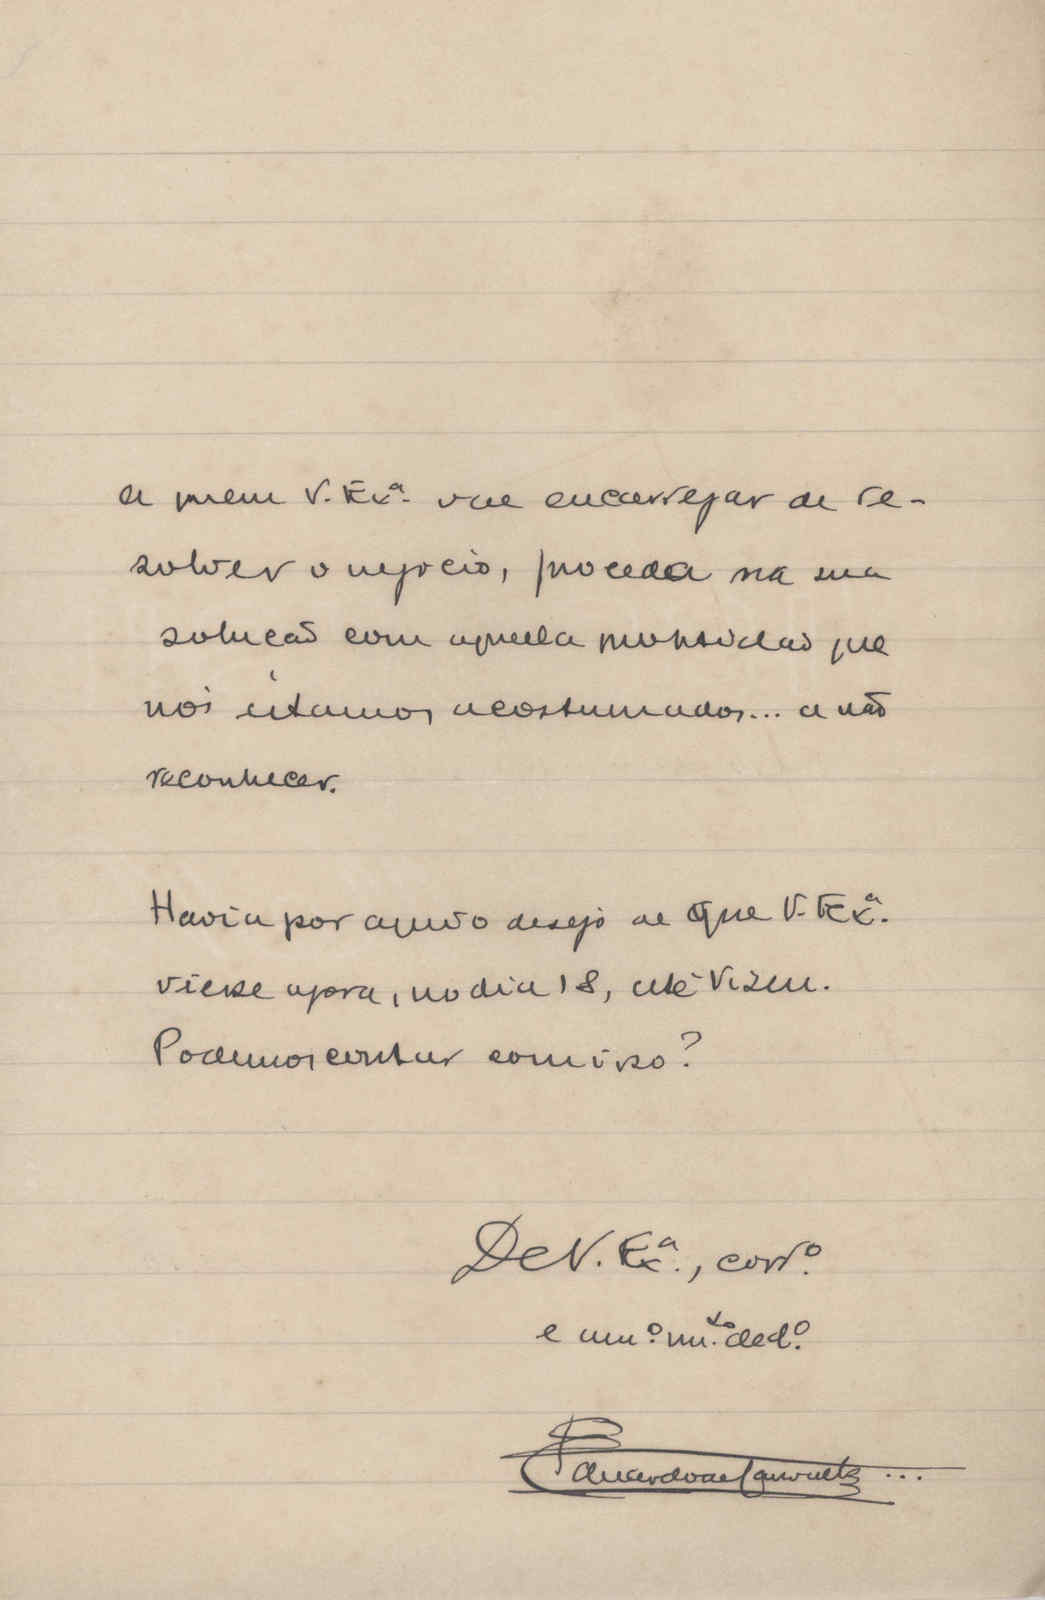 a quem V. Exª. vae encarregar de re-
solver o negocio, proceda na sua
solução com aquella promptidão que
nós estamos acostumados... a não
reconhecer.
Havia por aqui o desejo de que V. Exª.
viesse agora, no dia 18, até Vizeu.
Podemos contar com isso?
De V. Exª., corr.º
e am.º m.to ded.º
Eduardo de ...